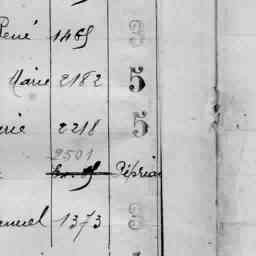 René 1465 3
Marie 2182 5
rie 2218 5
2501
nuel 1373 3